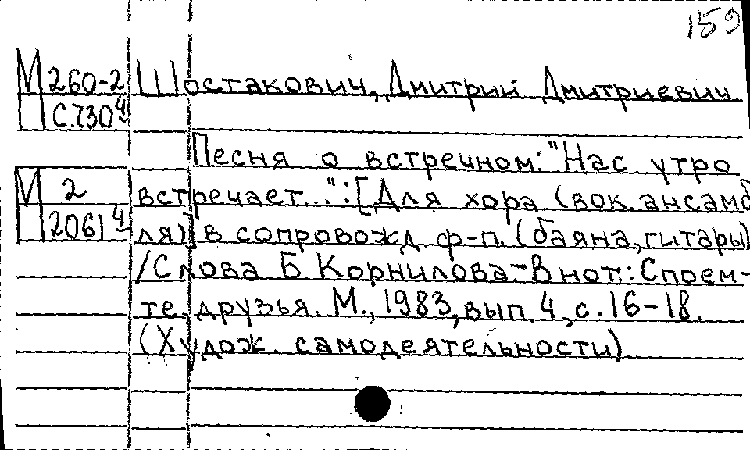 159
М 260-2 Шостакович, Дмитрий Дмитриевич
С.730⁴
Песня о встречном: "Нас утро
М 2 встречает..": [Для хора (вок. ансамб
2061⁴ ля)] в сопровожд. ф-п. (баяна, гитары)
/Слова Б. Корнилова-В нот.: Споем-
те, друзья. М., 1983, вып. 4, с. 16-18.
(Худож. самодеятельности)